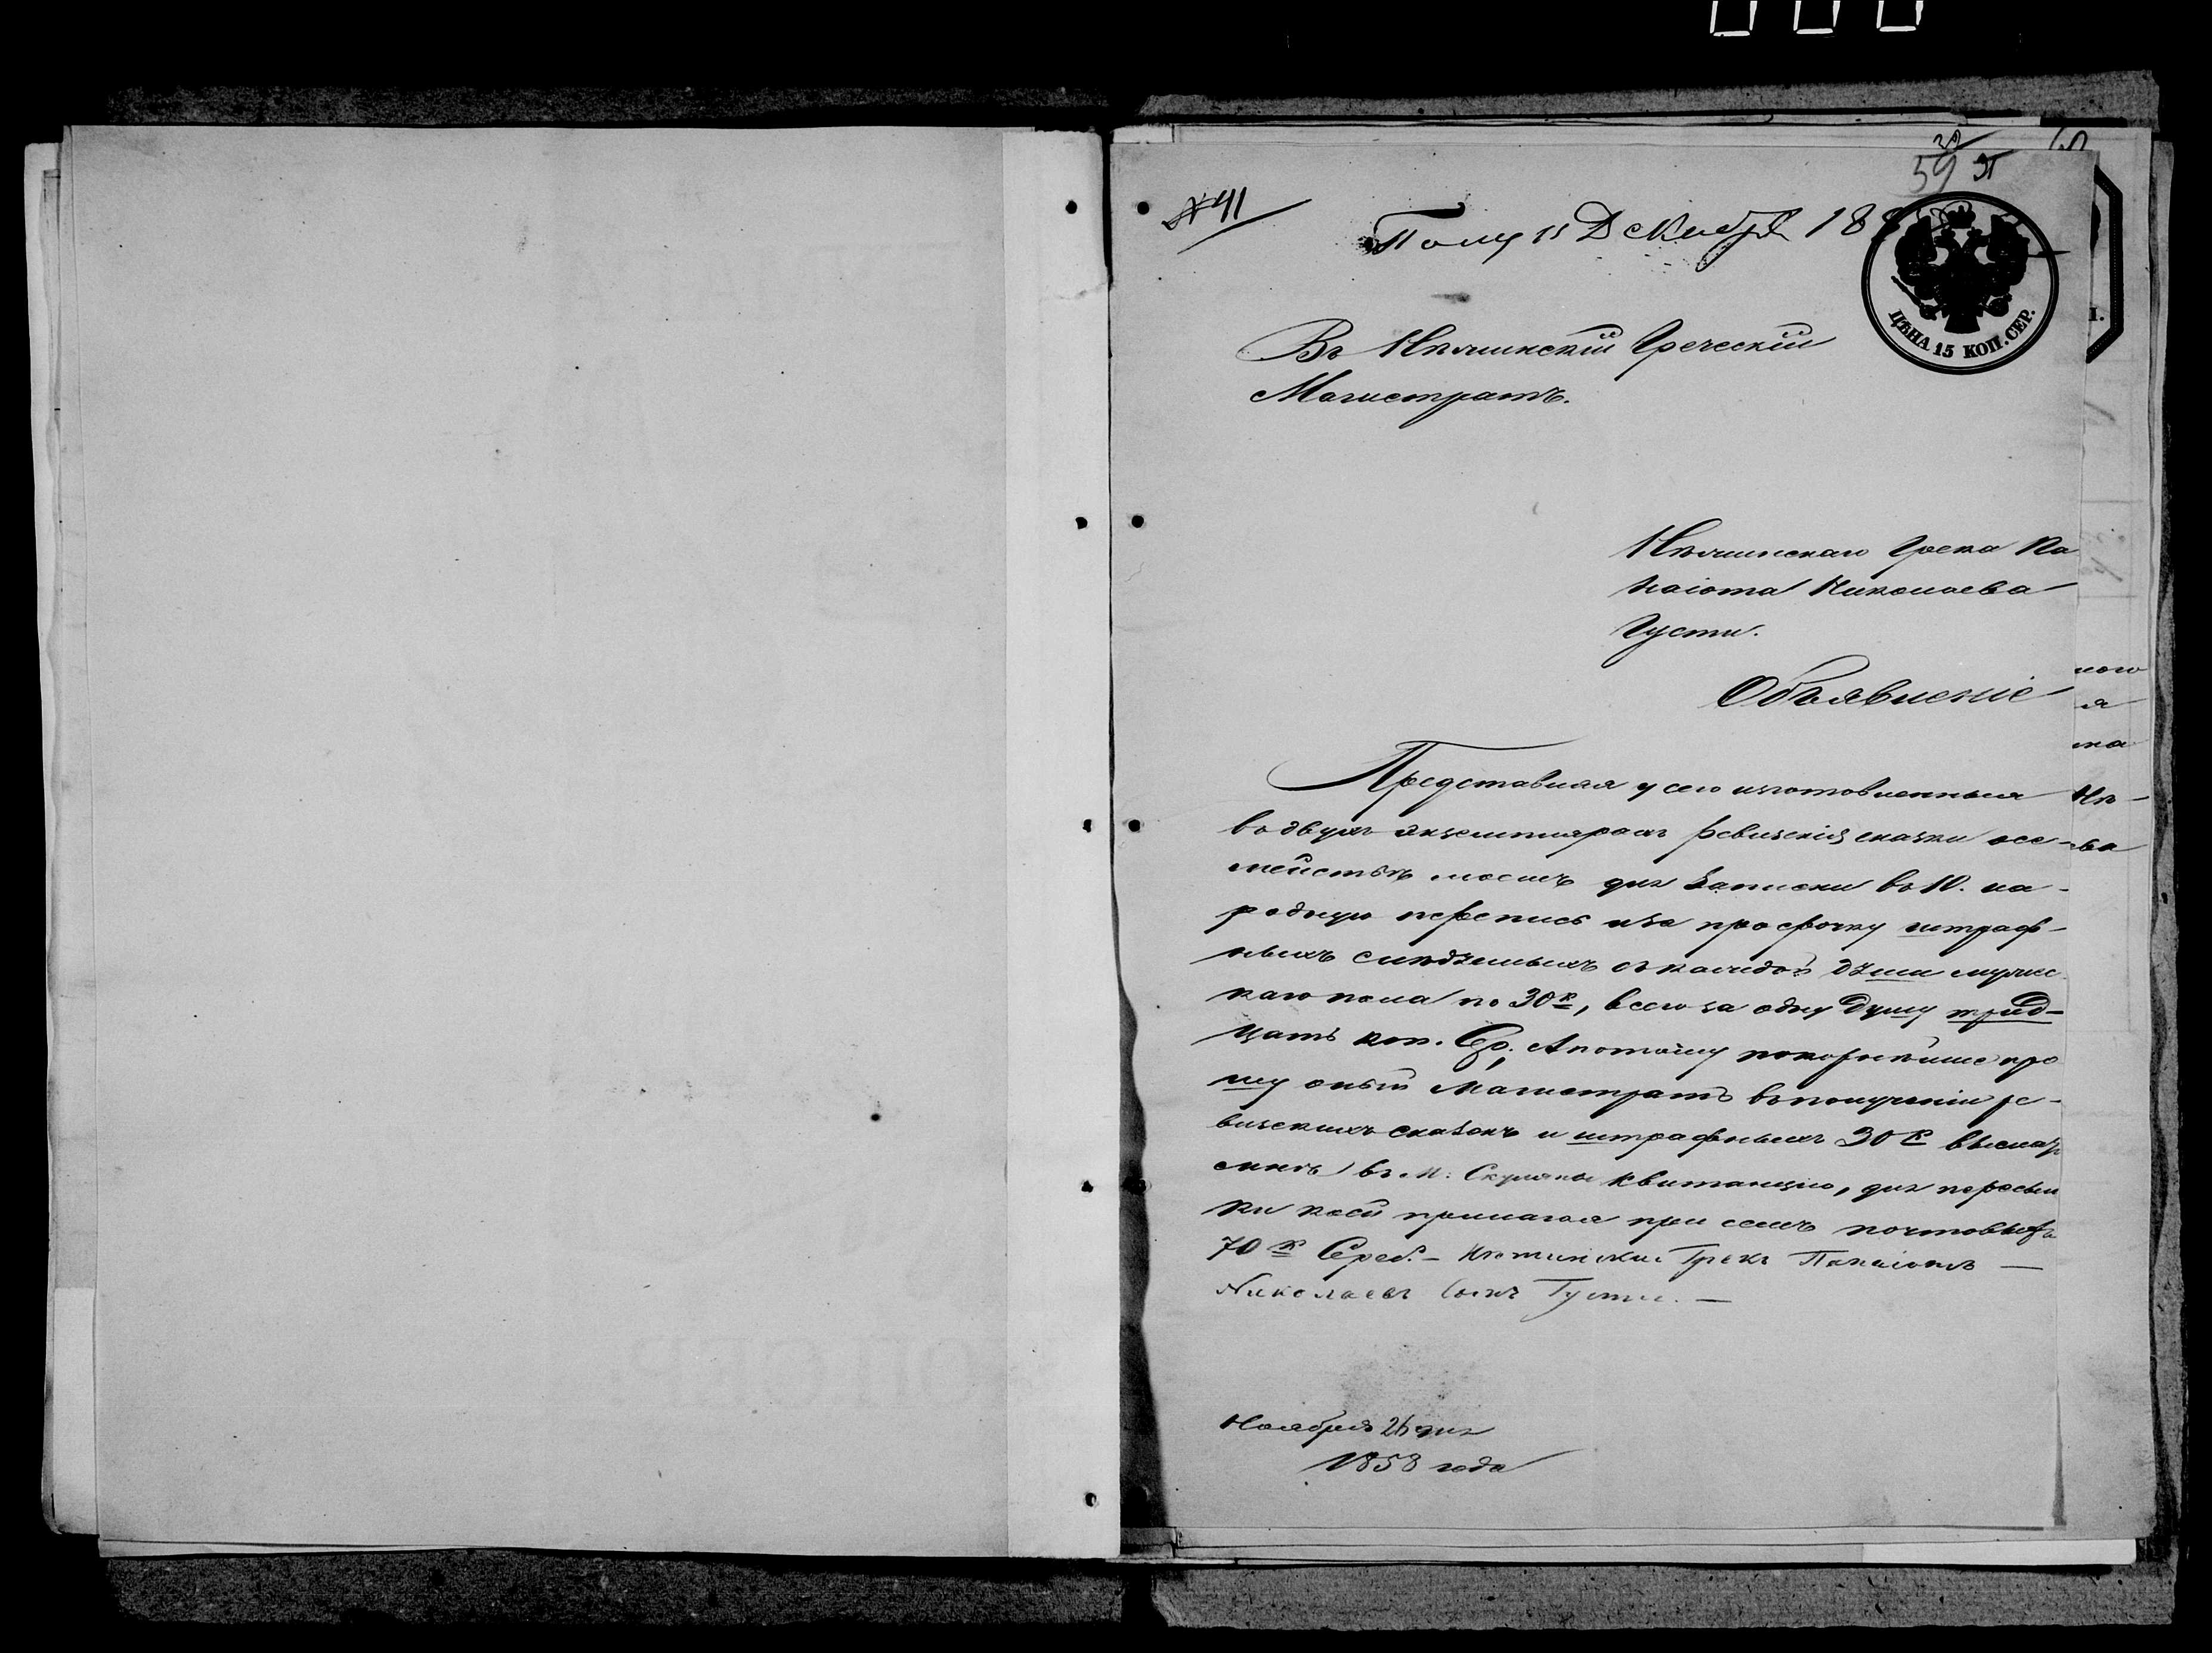 № 41
59
Полу 11 Декабря 185
ЦѢНА 15 КОП. СЕР.
Въ Нѣжинскій Греческій
Магистратъ.
Нѣжинскаго Грека Па
наіота Николаева
Густи.
Объявленіе
Представляя у сего изготовленныя
въ двухъ экземплярахъ ревизскія сказки о се-
мействѣ моемъ для записки въ 10. на-
родную перепись и за просрочку штраф-
ныхъ слѣдуемыхъ съ каждой души мужес
каго пола по 30 к, всего за одну душу трид-
цать коп. Сер. А потому покорнѣйше про
шу оный Магистратъ въ полученіи ре-
визскихъ сказокъ и штрафныхъ 30 к
мнѣ въ М. Скуляны квитанцію, для пересыл
ки коей прилагая при семъ почтовыхъ
70 к Сереб. – Нѣжинскій Грекъ Панаіотъ —
Николаевъ Сынъ Густи. —
Ноября 26 дня
1858 года
ного
я
ка
Нѣ-
ва